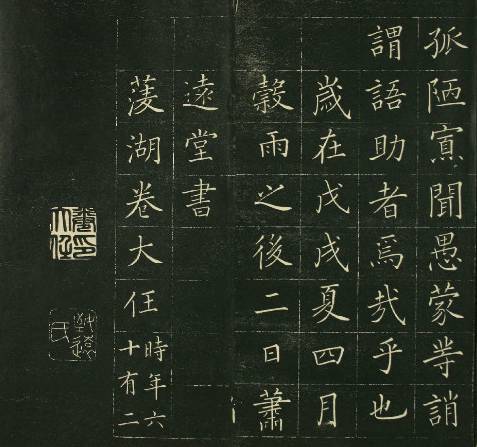 孤陋寡聞愚蒙等誚
謂語助者焉哉乎也
歳在戊戌夏四月
穀雨之後二日蕭
遠堂書
菱湖卷大任時年六十有二